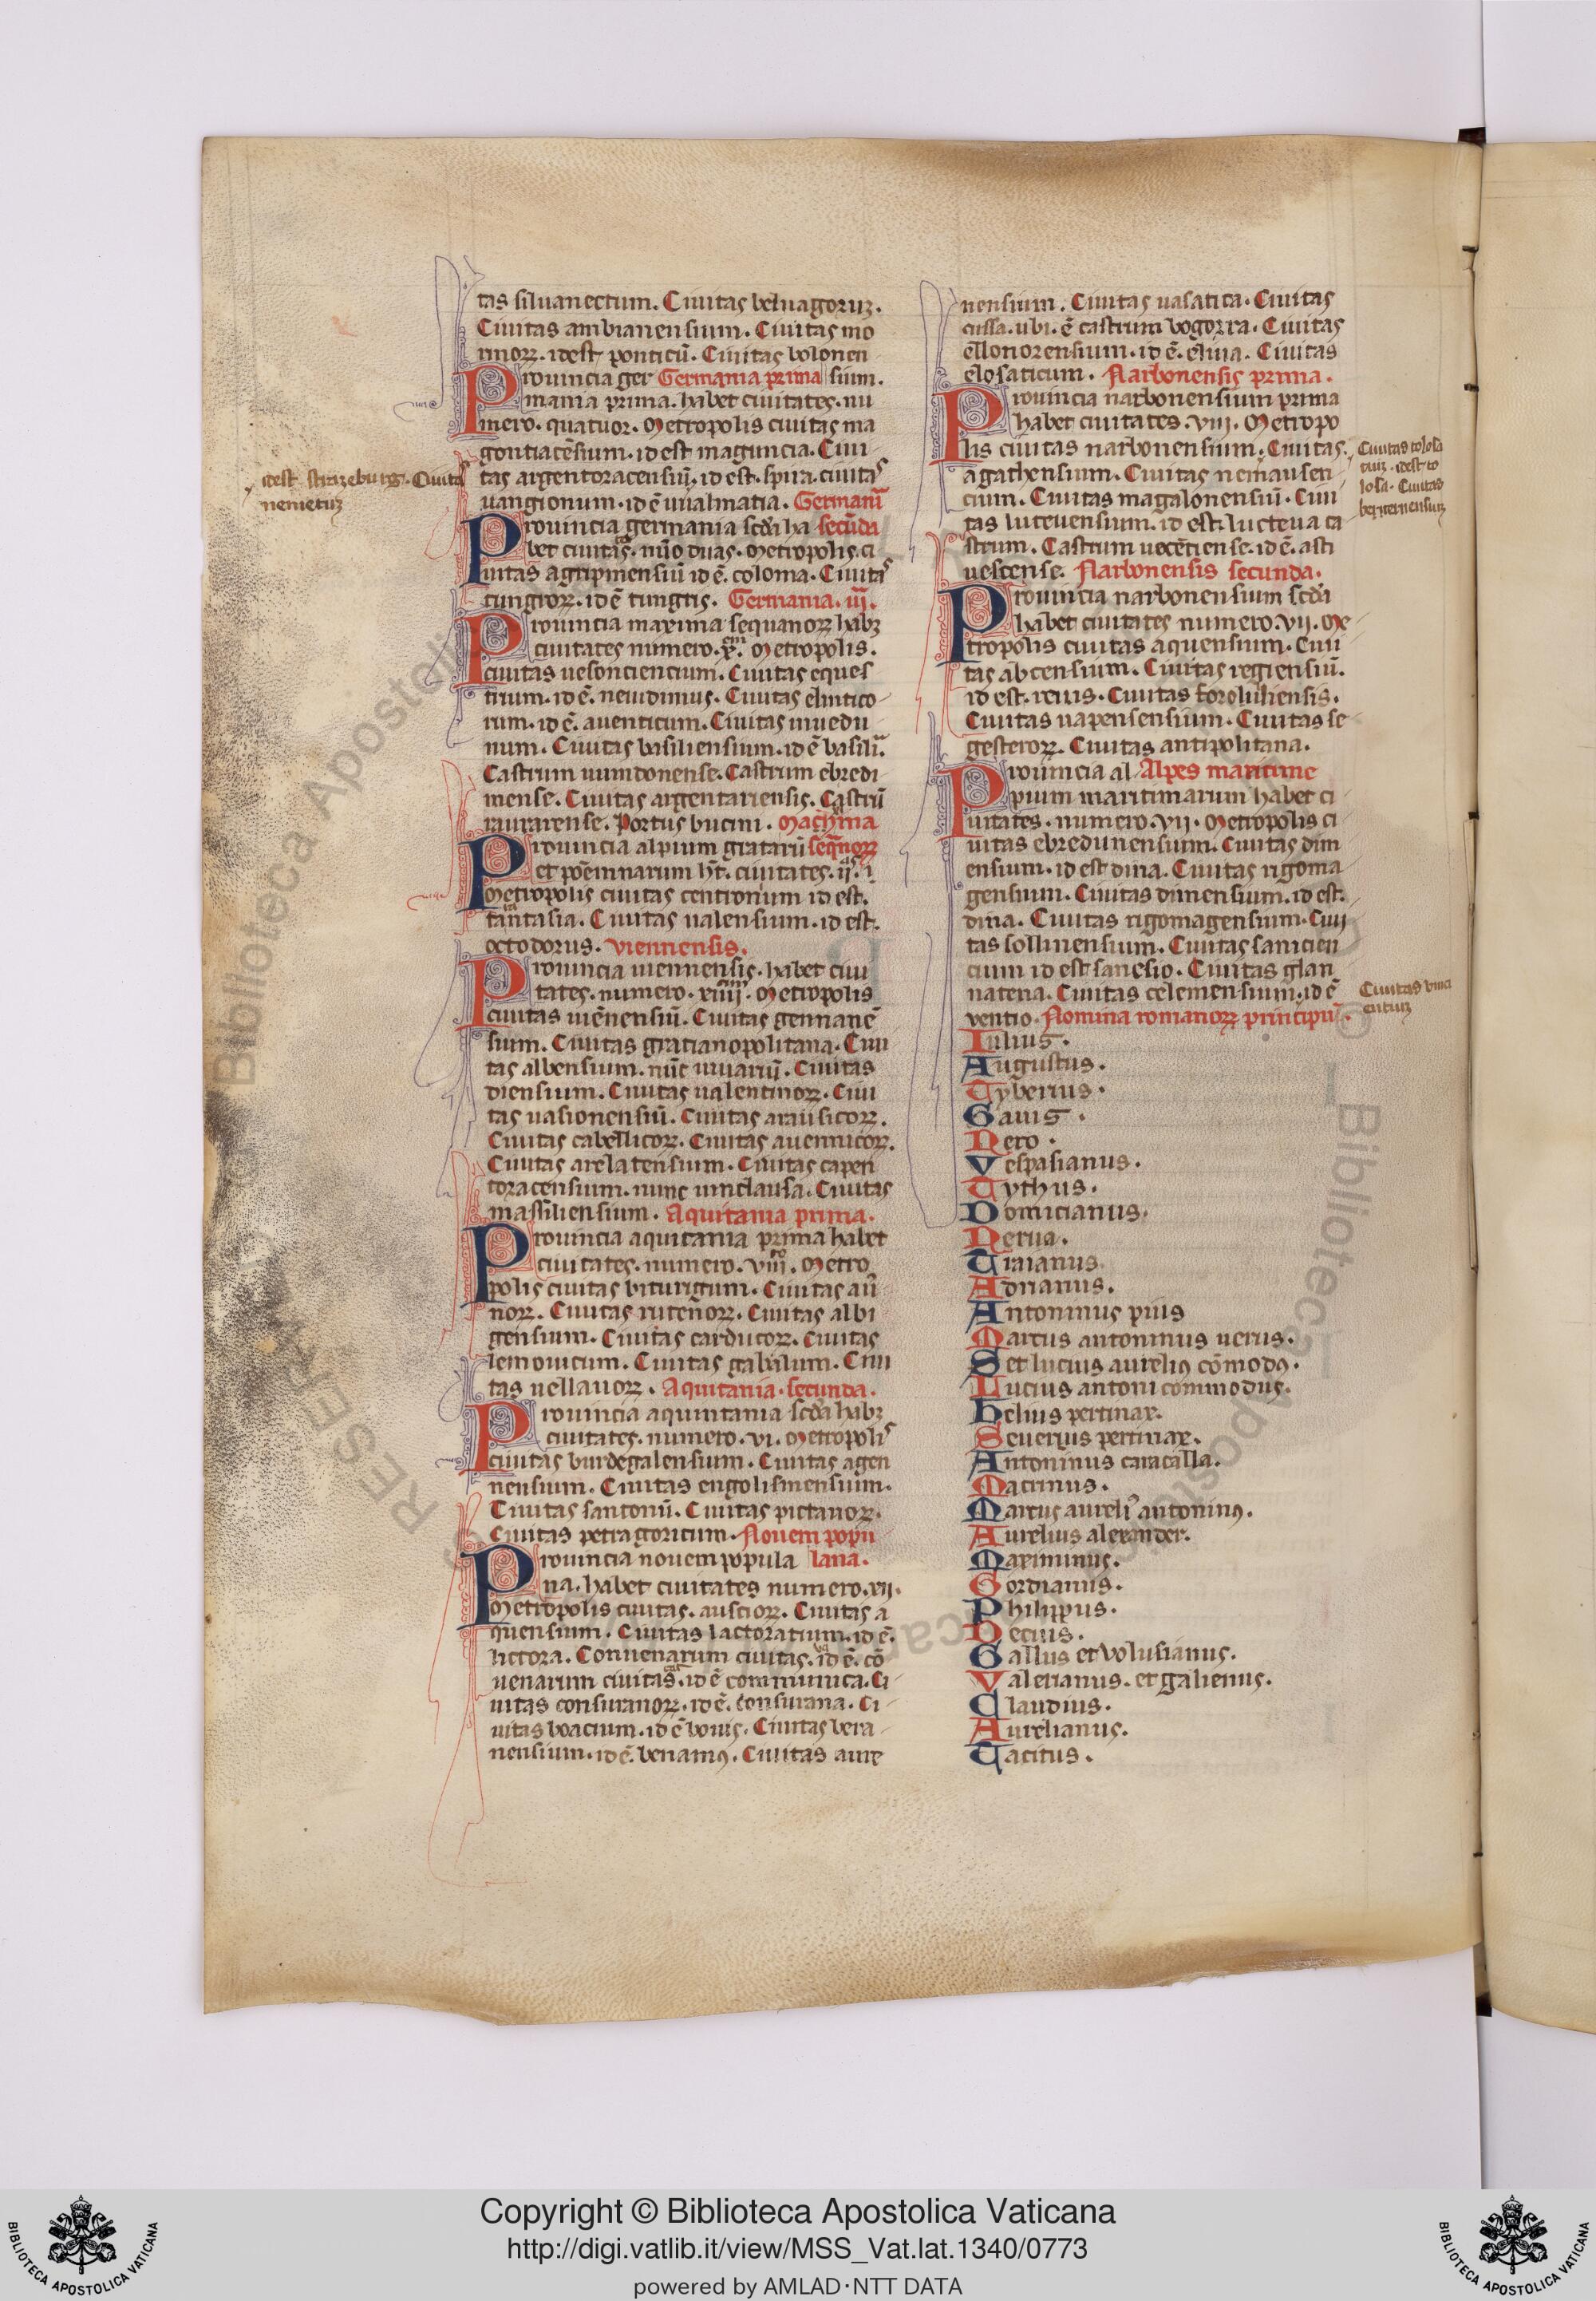 tas siluanectum. Ciuitas beluagoruꝫ.
Ciuitas ambianensium. Ciuitas mo
rinoꝝ. idest ponticū. Ciuitas bolonen
Prouincia ger Germania prima sium.
mania prima. habet ciuitates. nu
mero. quatuor. Metropolis ciuitas ma
gontiacēsium. id est maguncia. Ciui
tas argentoracensiū. id est. spira. ciuitas
uangionum. id ē uualmatia. Germania
Prouincia germania scd̄a ha secūda
bet ciuitas. nūo duas. Metropolis. ci
uitas agripinensiū id ē. colonia. Ciuitas
tungroꝝ. id ē tungris. Germania. iii.
Prouincia maxima sequanoꝝ habꝫ
ciuitates numero. x. Metropolis.
ciuitas uesonciencium. Ciuitas eques
trium. id ē. neuidimus. Ciuitas elintico
rum. id ē. auenticum. Ciuitas inuedu
num. Ciuitas basiliensium. id ē basilia.
Castrum uindonense. Castrum ebredi
mense. Ciuitas argentariensis. Castrū
raurarense. Portus bucini. Machina
Prouincia alpium gratarū seqnoꝝ
et poēminarum hȳt. ciuitates. ii. i
Metropolis ciuitas centronium id est.
tantasia. Ciuitas ualensium. id est.
octodorus. Viennensis.
Prouincia uiennensis. habet ciui
tates. numero. xiiii. Metropolis
ciuitas uiēnensiū. Ciuitas gennanē
sium. Ciuitas gratianopolitana. Ciui
tas albensium. nūc uiuariū. Ciuitas
diensium. Ciuitas ualentinoꝝ. Ciui
tas uasionensiū. Ciuitas arausicoꝝ.
Ciuitas cabellicoꝝ. Ciuitas auennicoꝝ.
Ciuitas arelatensium. Ciuitas capen
toracensium. nunc uinclausa. Ciuitas
massiliensium. Aquitania prima.
Prouincia aquitania prima habet
ciuitates. numero. viii. Metro
polis ciuitas biturigum. Ciuitas aū
noꝝ. Ciuitas rutenoꝝ. Ciuitas albi
gensium. Ciuitas carducoꝝ. Ciuitas
lemouicum. Ciuitas gabalum. Ciui
tas uellauoꝝ. Aquitania. secunda.
Prouincia aquintania scd̄a habꝫ
ciuitates. numero. vi. Metropolis
ciuitas burdegalensium. Ciuitas agen
nensium. Ciuitas engolismensium.
Ciuitas santonū. Ciuitas pictanoꝝ.
Ciuitas petragoricum. Nouem popu
Prouincia nouem popula lana.
na. habet ciuitates numero. xii.
Metropolis ciuitas. auscioꝝ. Ciuitas a
quensium. Ciuitas lactoratium. id ē.
lictora. Conuenarum ciuitas. id ē. cō
uenarum ciuitas. id ē communica. Ci
uitas consuranoꝝ. id ē. consurana. Ci
uitas boacium. id ē bouis. Ciuitas bera
nensium. id ē. benamꝰ. Ciuitas aure
idest strazeburg. Ciuitas
nemetuꝫ
nensium. Ciuitas uasatica. Ciuitas
cussa. ubi. ē castrum bogorra. Ciuitas
ellonorensium. id ē. elina. Ciuitas
elosaticum. Narbonensis prima.
Prouincia narbonensium prima
habet ciuitates. viii. Metropo
lis ciuitas narbonensium. Ciuitas.
agathensium. Ciuitas nemausen
cium. Ciuitas magalonensiū. Ciui
tas luteuensium. id est. lucteua ca
strum. Castrum uocētiense. id ē. asti
uescense. Narbonensis secunda.
Prouincia narbonensium scd̄a
habet ciuitates numero. vii. Me
tropolis ciuitas aquensium. Ciui
tas abcensium. Ciuitas regiensiū.
id est. reuis. Ciuitas foroluliensis.
Ciuitas uapensensium. Ciuitas se
gesteroꝝ. Ciuitas antipolitana.
Prouincia al Alpes maritime
pium maritimarum habet ci
uitates. numero. vii. Metropolis ci
uitas ebredunensium. Ciuitas dim
ensium. id est dina. Ciuitas rigoma
gensium. Ciuitas dinnensium. id est.
dina. Ciuitas rigomagensium. Ciui
tas sollinensium. Ciuitas sanicien
cium id est sanesio. Ciuitas glan
natena. Ciuitas celemensium. id ē
ventio. Nomina romanoꝝ principū.
Ciuitas tolosa
tiuꝫ. idest to
losa. Ciuitas
Ciuitas vinci
entiuꝫ
Iulius.
Augustus.
Tyberius.
Gaius.
Nero.
Vespasianus.
Tythus.
Domicianus.
Nerua.
Traianus
Adrianus.
Antoninus pius
Marcus antoninus uerus.
Set lucius aureliꝰ cōmodꝰ.
Lucius antoni commodus.
Helius pertinax.
Seuerius pertinax.
Antoninus caracalla.
Macrinus.
Marcus aureliꝰ antoninꝰ.
Aurelius alexander.
Maximinus.
Gordianus.
Philippus.
Decius.
Gallus et Volusianus.
Valerianus. et galienus.
Claudius.
Aurelianus.
Tacitus.
Copyright © Biblioteca Apostolica Vaticana
http://digi.vatlib.it/view/MSS_Vat.lat.1340/0773
powered by AMLAD·NTT DATA
BIBLIOTECA APOSTOLICA VATICANA
BIBLIOTECA APOSTOLICA VATICANA